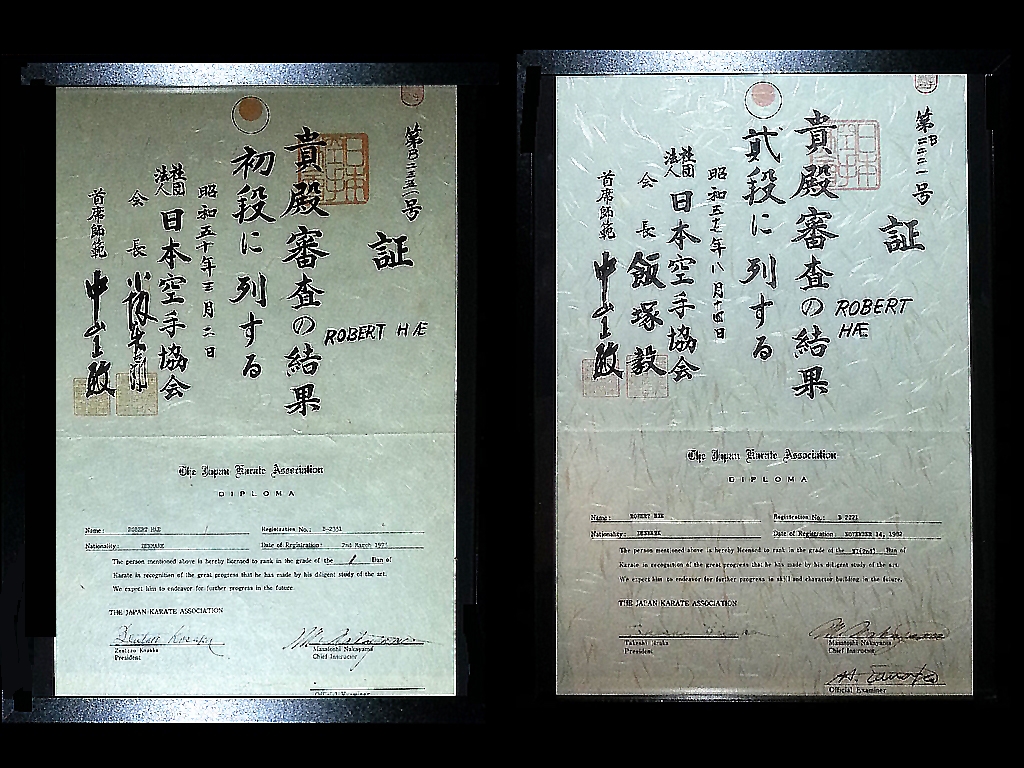 第B二三五一号
証
ROBERT HÆ
貴殿審査の結果
初段に列する
昭和五十年三月二日
社団法人 日本空手協会
会長
首席師範 中山正敏
The Japan Karate Association
DIPLOMA
Name: ROBERT HAE Registration No.: B-2351
Nationality: DENMARK Date of Registration: 2nd March 197
The person mentioned above is hereby licensed to rank in the grade of the 1 Dan of
Karate in recognition of the great progress that he has made by his diligent study of the art.
We expect him to endeavor for further progress in the future.
THE JAPAN KARATE ASSOCIATION
Zentaro Kosaka
President
Masatoshi Nakayama
Chief Instructor
Official Examiner
第B二二二一号
証
ROBERT
HÆ
貴殿審査の結果
弐段に列する
昭和五十七年八月十四日
社団法人 日本空手協会
会長 飯塚毅
首席師範 中山正敏
The Japan Karate Association
DIPLOMA
Name: ROBERT HAE Registration No.: B 2221
Nationality: DENMARK Date of Registration: NOVEMBER 14, 1982
The person mentioned above is hereby licensed to rank in the grade of the (2nd) Dan of
Karate in recognition of the great progress that he has made by his diligent study of the art.
We expect him to endeavor for further progress in skill and character building in the future.
THE JAPAN KARATE ASSOCIATION
Takeshi Iizuka
President
Masatoshi Nakayama
Chief Instructor
Official Examiner